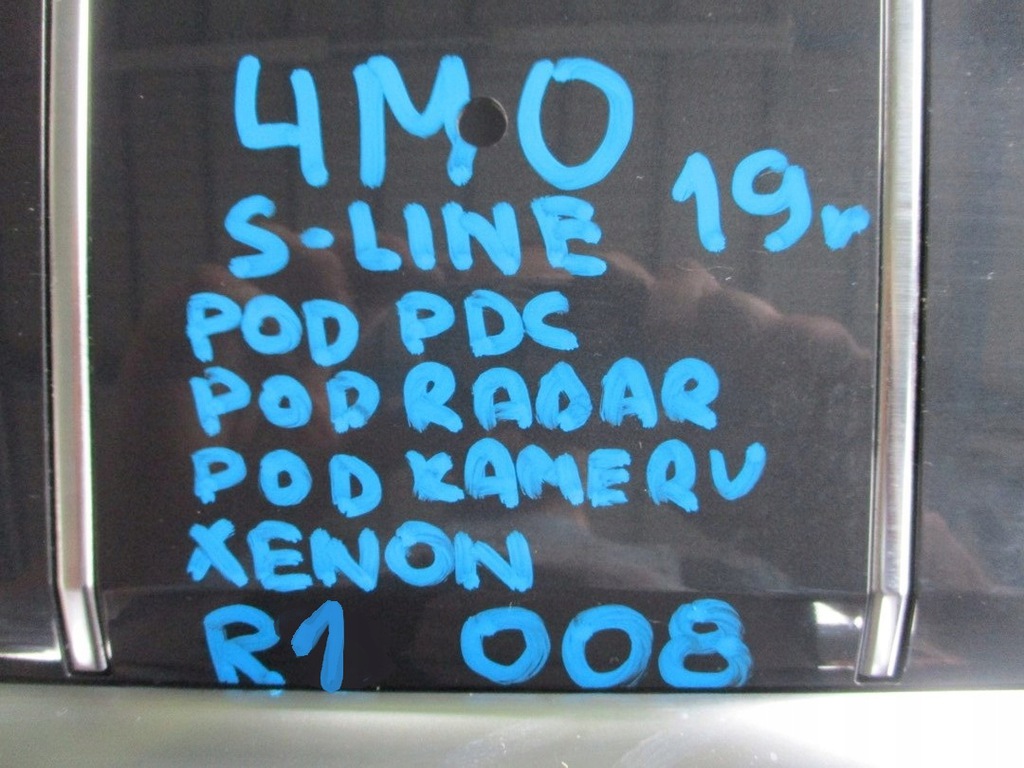 4M0
S-LINE 19r
POD PDC
POD RADAR
POD KAMERU
XENON
R1 008